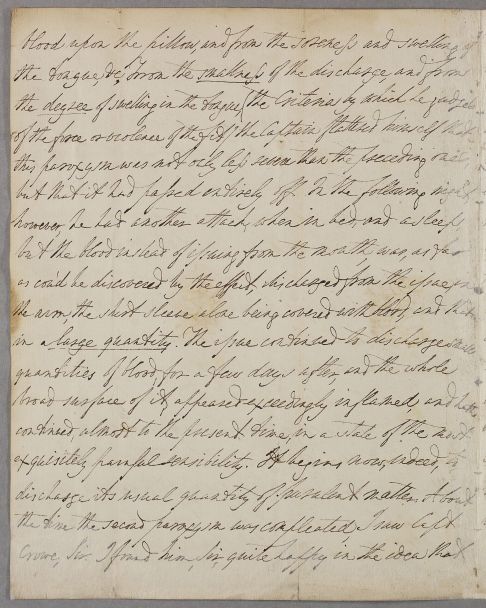 blood upon the pillow, and from the soreness and swelling of
the tongue, &c. From the smallness of the discharge, and from
the degree of swelling in the tongue, (the Criteria by which he judged
of the force or violence of the fit) the Captain flattered himself that
this paroxysm was not only less severe than the preceding one
but that it had passed entirely off. On the following night,
however, he had another attack, when in bed, and asleep;
but the blood instead of issuing from the mouth was, as far
as could be discovered by the effect, discharged from the issue in
the arm, the shirt sleeve alone being covered with blood, and that
in a large quantity. The issue continued to discharge small
quantities of blood for a few days after, and the whole
broad surface of it appeared exceedingly inflamed, and hath
continued, almost to the present time, in a state of the most
exquisitely painful sensibility. It begins now, indeed, to
discharge its usual quantity of purulent matter. About
the time the second paroxysm was compleated I saw Capt
Crowe, Sir. I found him, Sir, quite happy in the idea that